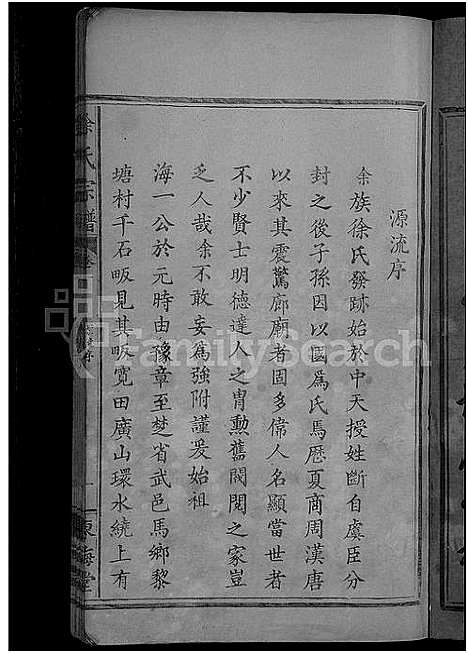 源流序
余族徐氏發跡始於中天授姓斷自虞臣分
封之後子孫因以國爲氏馬歷夏商周漢唐
以來其震驚廊廟者固多偉人名顯當世者
不少賢士明德達人之胄勳舊閥閱之家豈
乏人哉余不敢妄爲強附謹爰始祖
海一公於元時由豫章至楚省武邑馬鄉黎
塘村千石畈見其畈寬田廣山環水繞上有
徐氏宗譜
卷
源流序
一
東海堂
FamilySearch